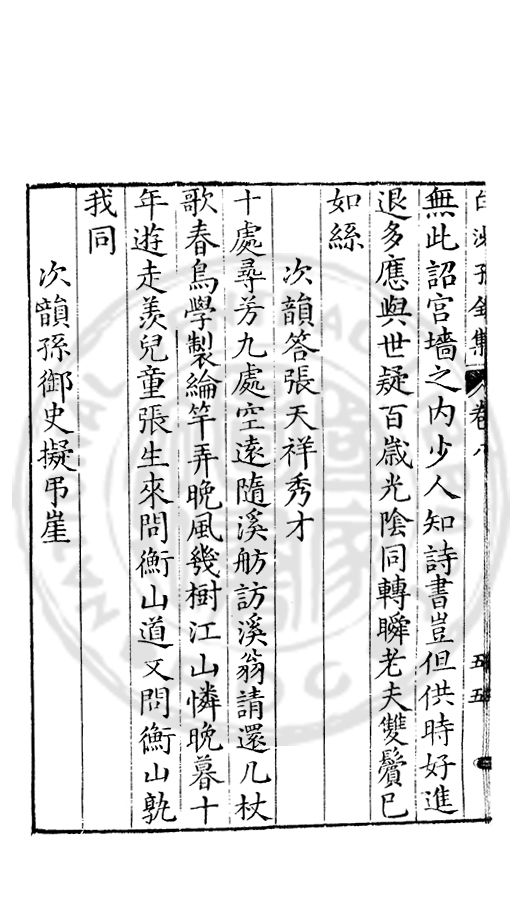 白沙子全集 卷八 五五
無此詔宫墻之内少人知詩書豈但供時好進
退多應與世疑百歲光陰同轉瞬老夫雙鬢已
如絲
次韻答張天祥秀才
十處尋芳九處空遠隨溪舫訪溪翁請還几杖
歌春鳥學製綸竿弄晚風幾樹江山憐晚暮十
年遊走羨兒童張生來問衡山道又問衡山孰
我同
次韻孫御史擬弔崖